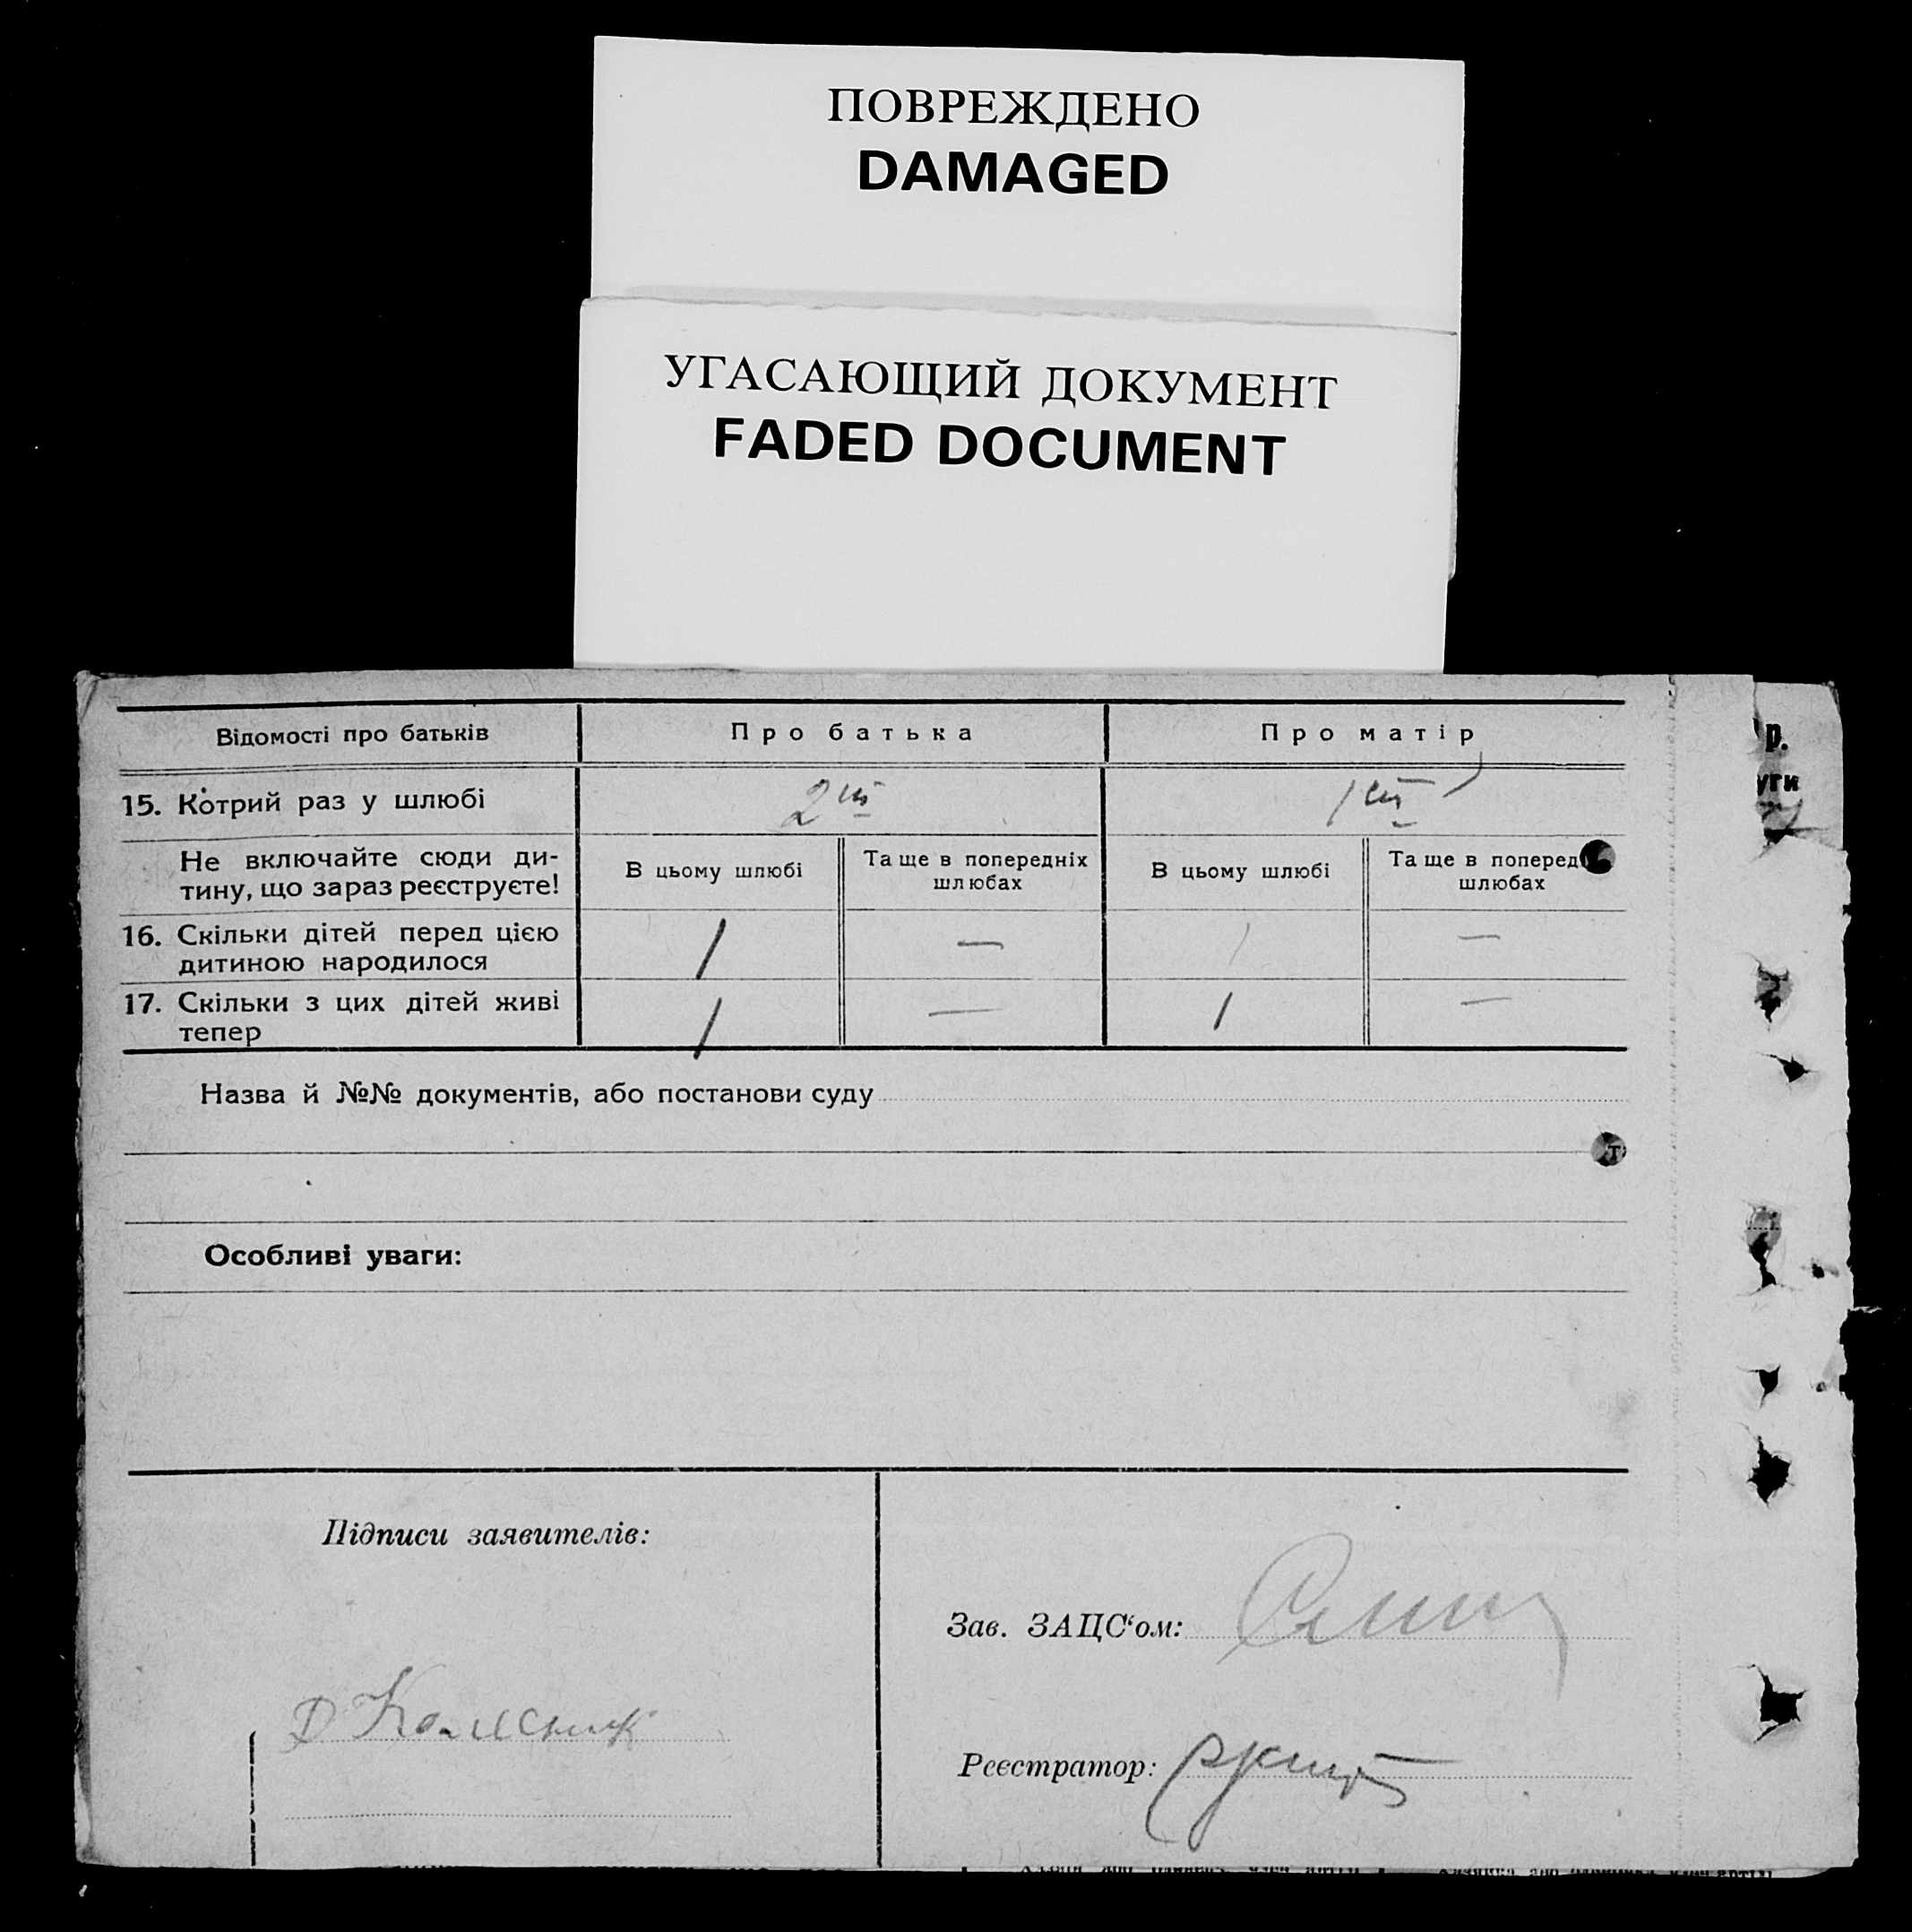 ПОВРЕЖДЕНО
DAMAGED
УГАСАЮЩИЙ ДОКУМЕНТ
FADED DOCUMENT
Відомості про батьків Про батька Про матір
р.
15. Котрий раз у шлюбі 2ий 1ий
уги
Не включайте сюди ди-
тину, що зараз реєструєте!
В цьому шлюбі
Та ще в попередніх
шлюбах
В цьому шлюбі
Та ще в поперед
шлюбах
16. Скільки дітей перед цією
дитиною народилося
1 — 1 —
17. Скільки з цих дітей живі
тепер
1 — 1 —
Назва й №№ документів, або постанови суду
т
Особливі уваги:
Підписи заявителів:
Зав. ЗАЦС‘ом:
Д Колисник
Реєстратор: